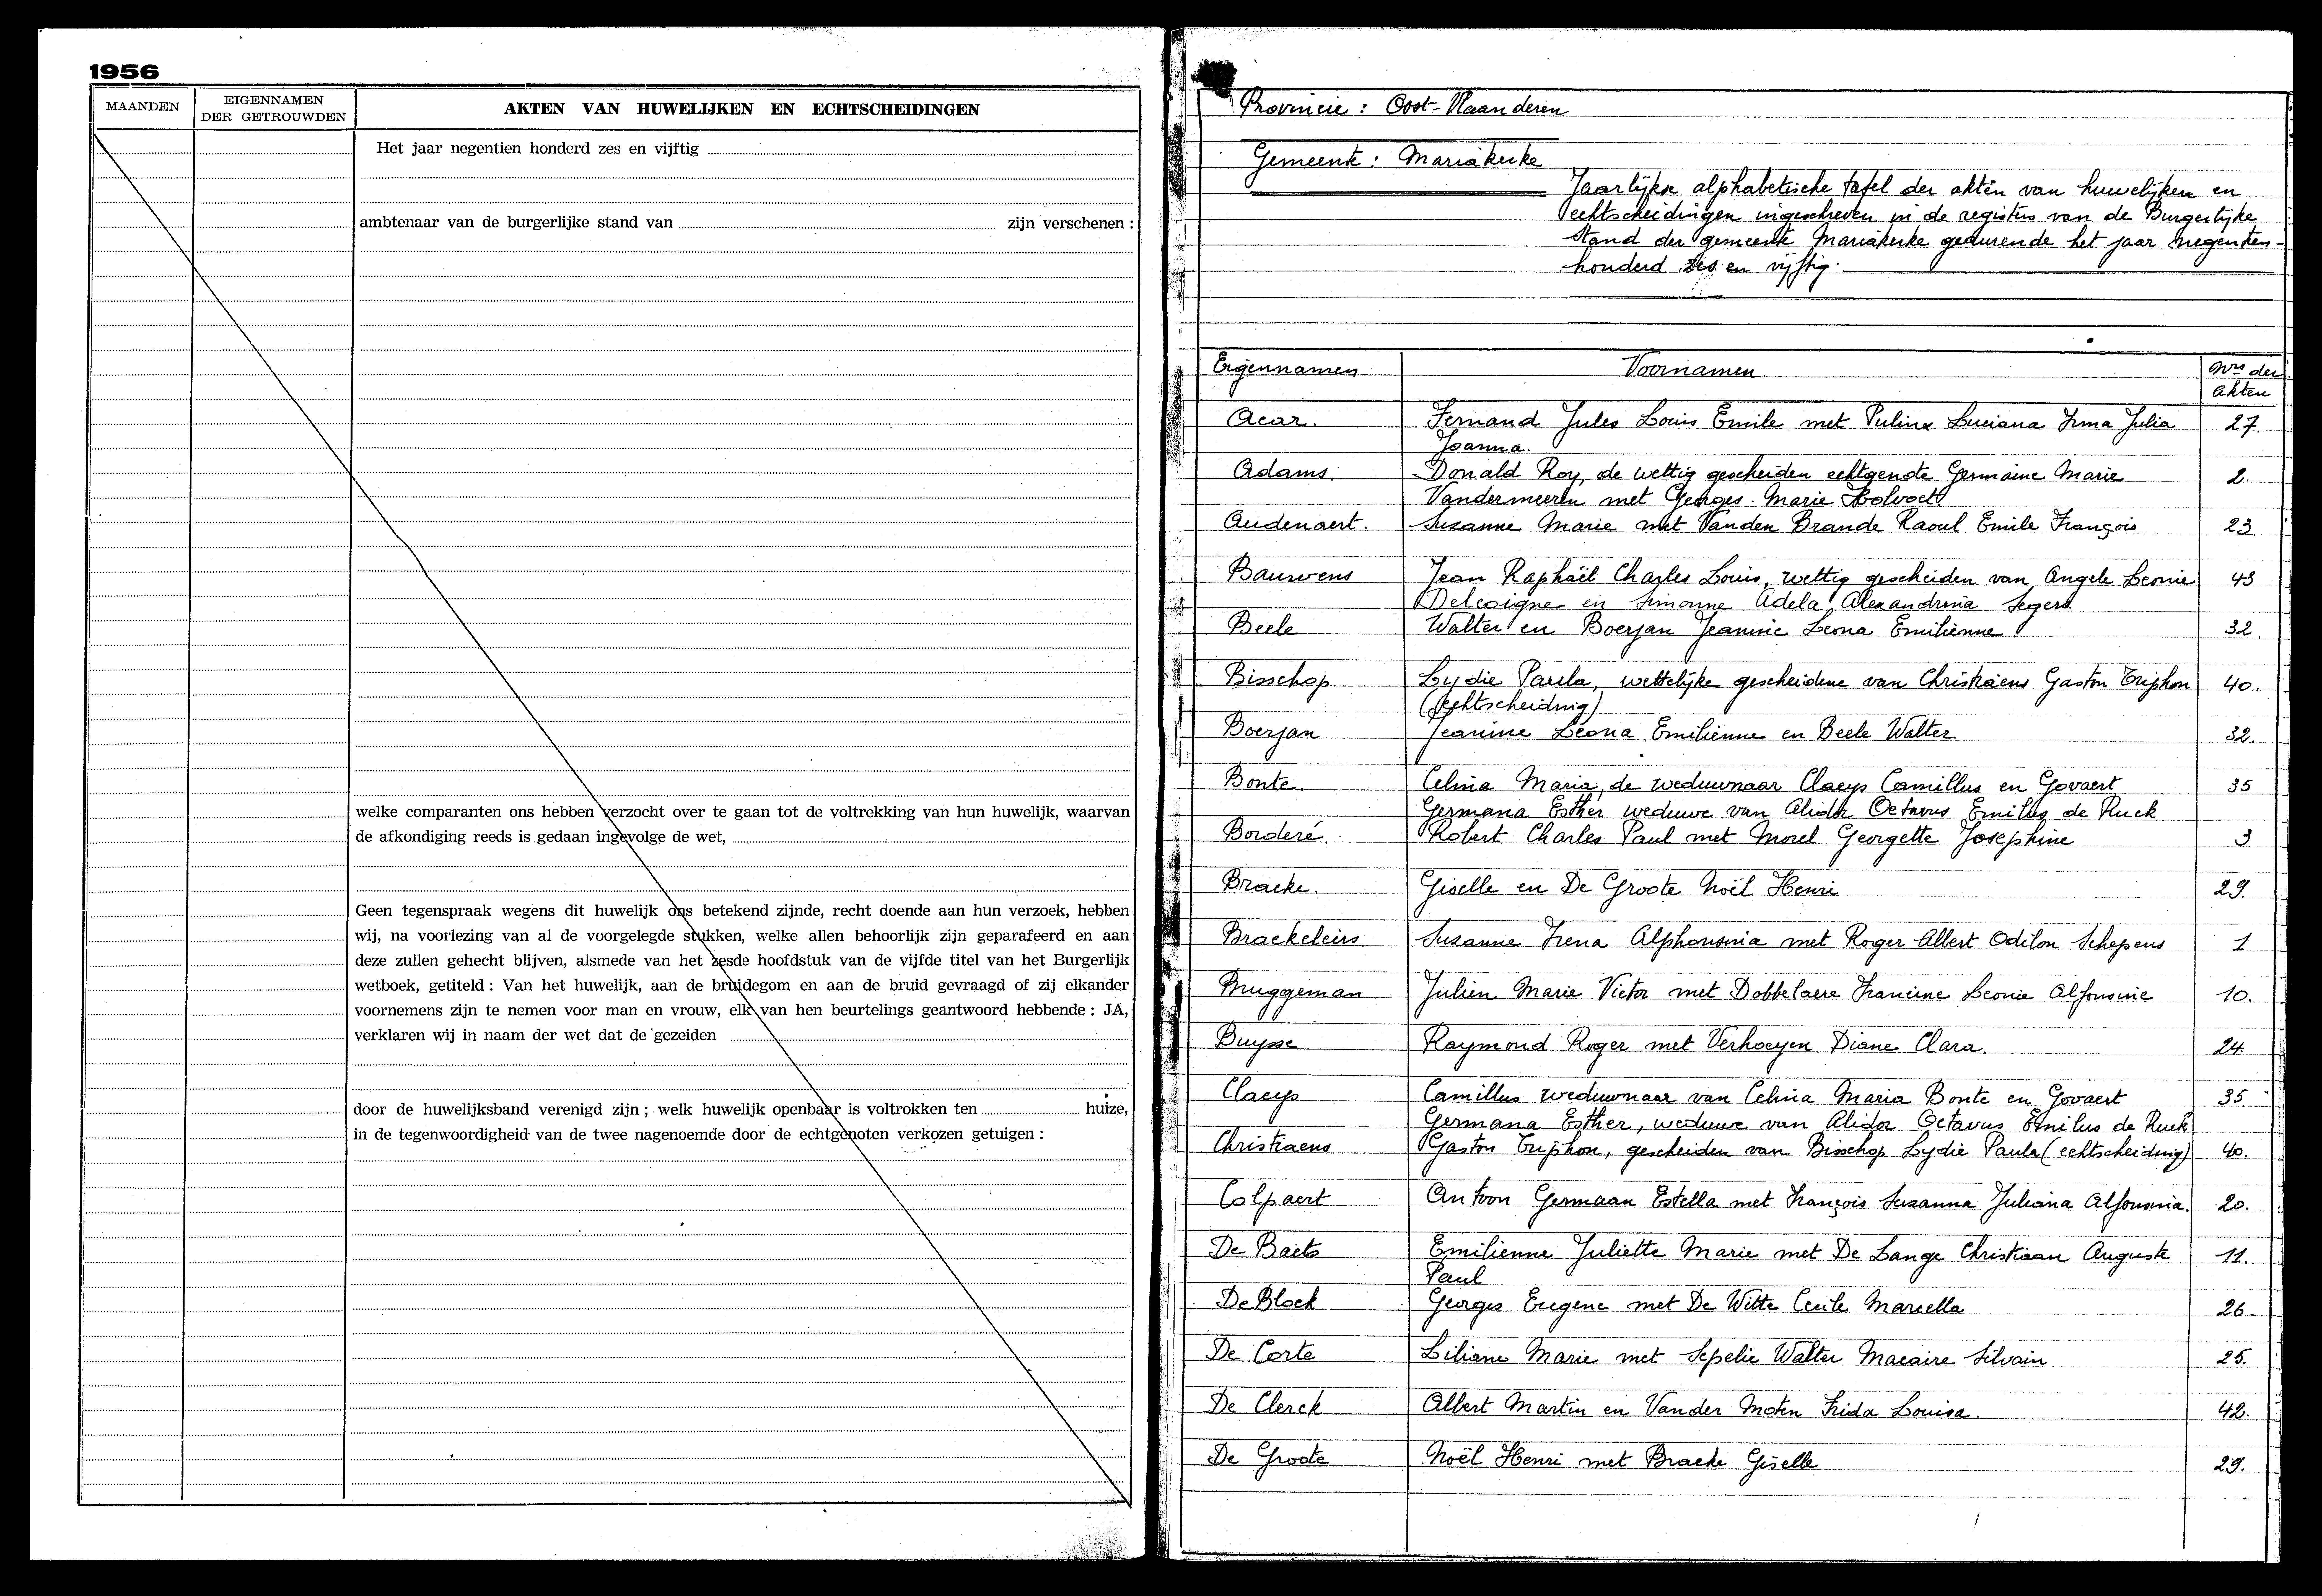 1956
MAANDEN
EIGENNAMEN
DER GETROUWDEN
AKTEN VAN HUWELIJKEN EN ECHTSCHEIDINGEN
Het jaar negentien honderd zes en vijftig
ambtenaar van de burgerlijke stand van zijn verschenen :
welke comparanten ons hebben verzocht over te gaan tot de voltrekking van hun huwelijk, waarvan
de afkondiging reeds is gedaan ingevolge de wet,
Geen tegenspraak wegens dit huwelijk ons betekend zijnde, recht doende aan hun verzoek, hebben
wij, na voorlezing van al de voorgelegde stukken, welke allen behoorlijk zijn geparafeerd en aan
deze zullen gehecht blijven, alsmede van het zesde hoofdstuk van de vijfde titel van het Burgerlijk
wetboek, getiteld : Van het huwelijk, aan de bruidegom en aan de bruid gevraagd of zij elkander
voornemens zijn te nemen voor man en vrouw, elk van hen beurtelings geantwoord hebbende : JA,
verklaren wij in naam der wet dat de gezeiden
door de huwelijksband verenigd zijn ; welk huwelijk openbaar is voltrokken ten huize,
in de tegenwoordigheid van de twee nagenoemde door de echtgenoten verkozen getuigen :
Provincie : Oost-Vlaanderen
Gemeente : Mariakerke
Jaarlijkse alphabetische tafel der akten van huwelijken en
echtscheidingen ingeschreven in de registers van de Burgerlijke
Stand der gemeente Mariakerke gedurende het jaar negentien
honderd zes en vijftig.
Eigennamen Voornamen Nrs der
Akten
Acar. Fernand Jules Louis Emile met Luciana Irma Julia 27.
Joanna.
Adams. Donald Roy, de wettig gescheiden echtgenote Germaine Marie 2.
Vandermeeren met Georges Marie Holvoet
Audenaert. Suzanne Marie met Vanden Brande Raoul Emile François 23.
Bauwens Jean Raphaël Charles Louis, wettig gescheiden van Angele Leonie 43
Delcoigne en Simonne Adela Alexandrina Segers
Beele Walter en Boerjan Jeanine Leona Emilienne 32.
Bisschop Lydie Paula, wettelijke gescheidene van Christiaens Gaston Triphon 40.
(echtscheiding)
Boerjan Jeanine Léona Emilienne en Beele Walter. 32.
Bonte. Celina Maria, de weduwnaar Claeys Camillus en Govaert 35
Germana Esther weduwe van Alidor Octavus Emilius de Ruck
Borderé Robert Charles Paul met Morel Georgette Josephine 3
Bracke. Giselle en De Groote Noël Henri 29.
Braekeleirs Suzanne Irena Alphonsina met Roger Albert Odilon Schepens 1
Bruggeman Julien Marie Victor met Dobbelaere Francine Leonie Alfonsine 10.
Buysse Raymond Roger met Verhoeyen Diane Clara. 24.
Claeys Camillus weduwnaar van Celina Maria Bonte en Govaert 35.
Germana Esther, weduwe van Alidor Octavus Emilus de Ruck
Christiaens Gaston Triphon, gescheiden van Bisschop Lydie Paula (echtscheiding) 40.
Colpaert Antoon Germaan Estella met François Suzanna Juliana Alfonsina. 20.
De Baets Emilienne Juliette Marie met De Lange Christiaan Auguste 11.
Paul
De Block Georges Eugene met De Witte Cecile Marcella 26.
De Corte Liliane Marie met Sepelie Walter Macaire Silvain 25.
De Clerck Albert Martin en Vander Moten Frida Louisa. 42.
De Groote Noël Henri met Bracke Giselle 29.